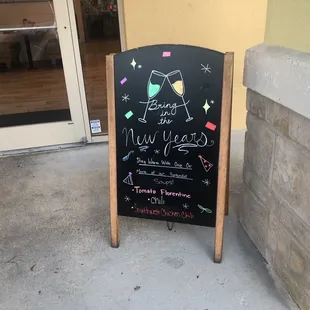 Bring
in the
New Years
Stay Warm With One Or
More of our
Soups!
• Tomato Florentine
• Chili
• Southwest Chicken Chili